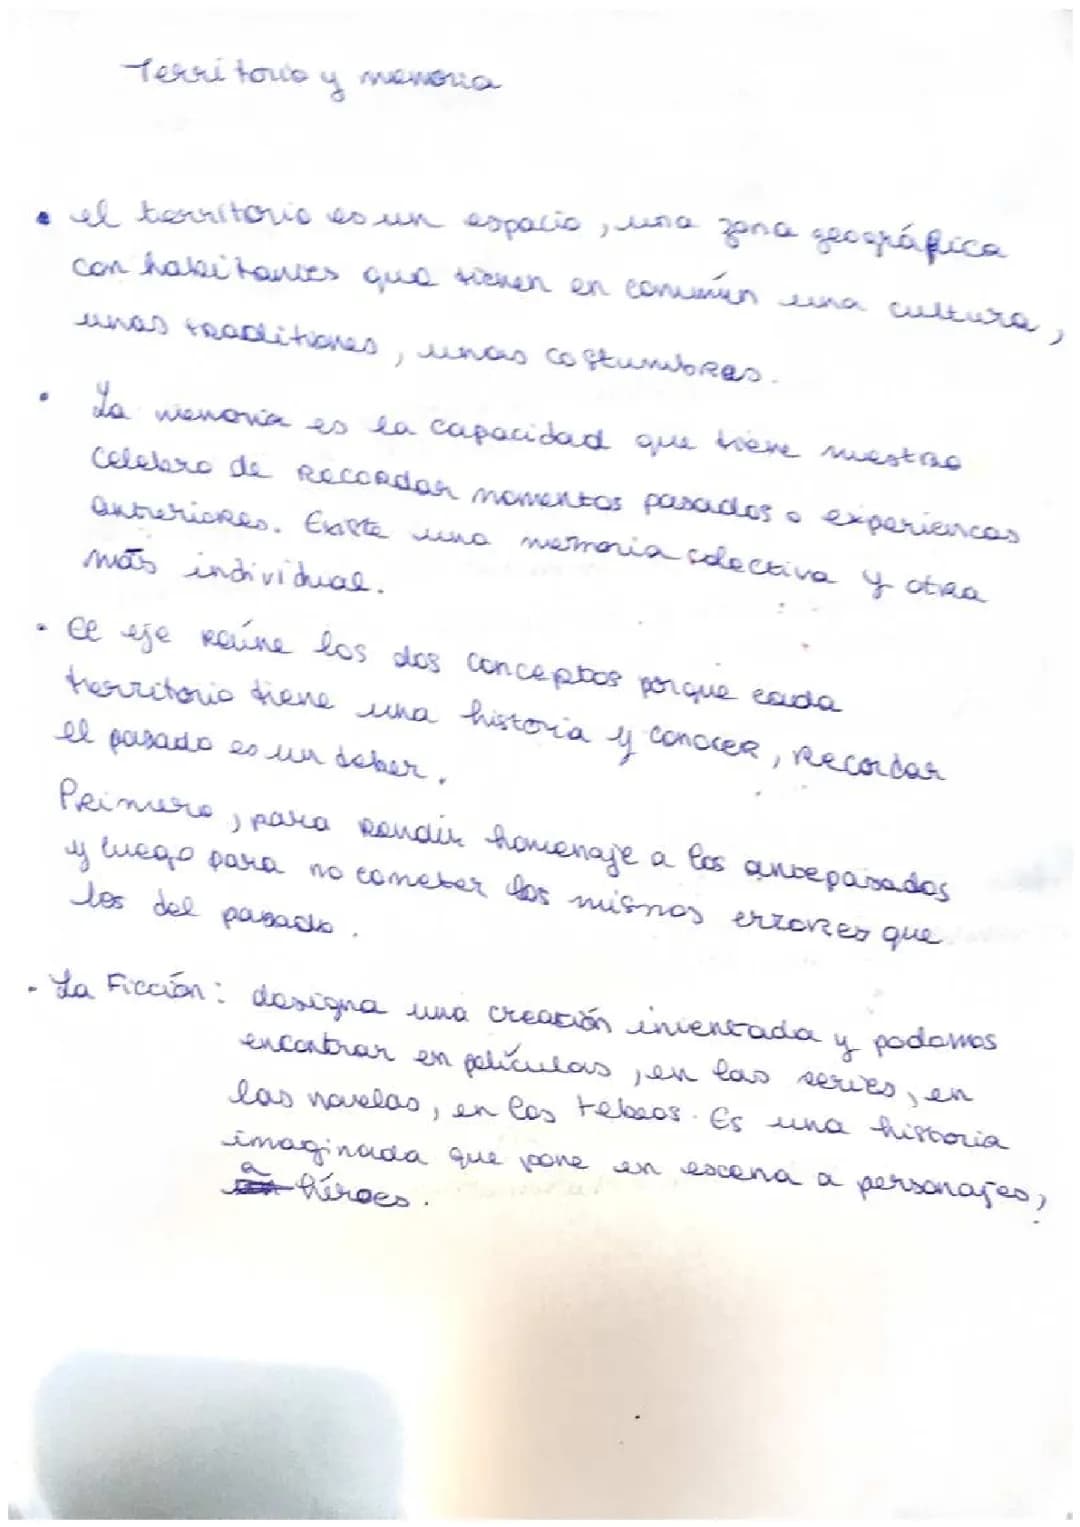 Territorio y memoria
• el territorio es un espacio, una zona geográfica
con habitantes que tienen en común una cultura,
unas traditiones, unas costumbres.
• La memoria es la capacidad que tiene nuestro
celebro de recordar momentos pasados o experiencas
anteriores. Existe una memoria colectiva y otra
más individual.
• El eje reúne los dos conceptos porque cada
territorio tiene una historia y conocer, recordar
el pasado es un deber.
Primero, para rendir homenaje a los antepasados
y luego para no cometer los mismos errores que
los del pasado.
• La Ficción: designa una creación inventada y podemos
encontrar en películas, en las series, en
las novelas, en los tebeos. Es una historia
imaginada que pone en escena a personajes,
a héroes.